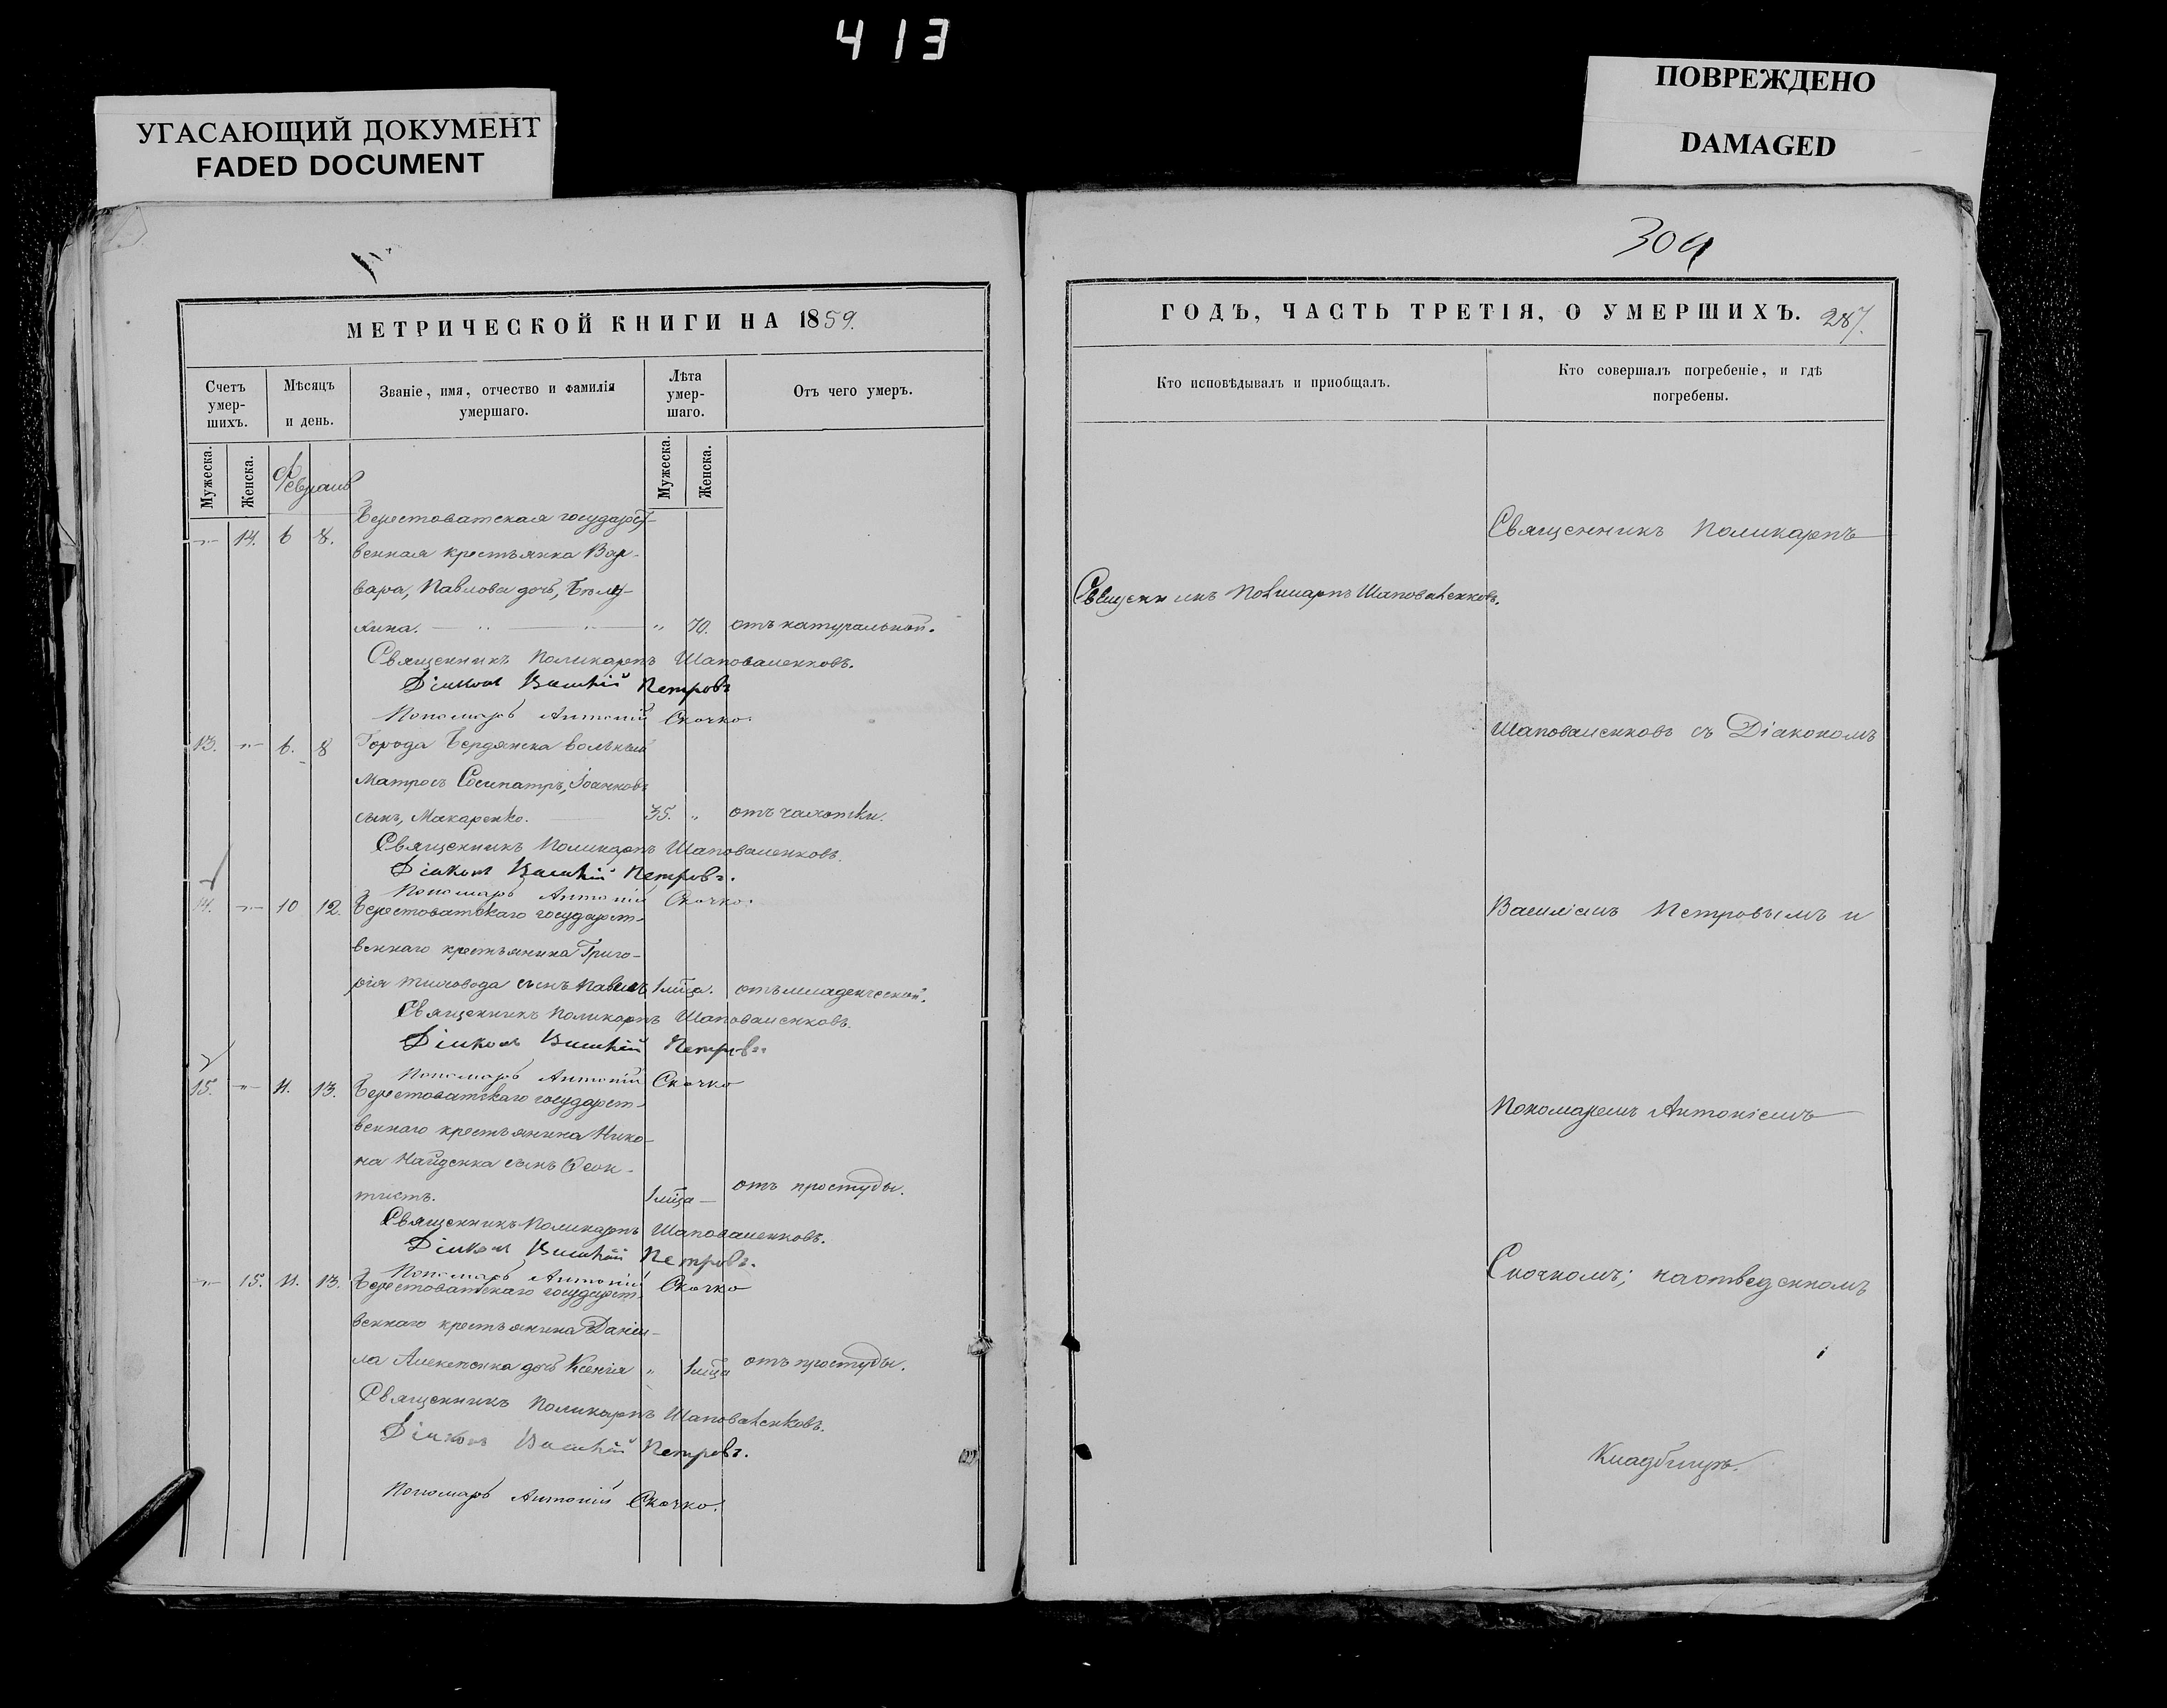 413
УГАСАЮЩИЙ ДОКУМЕНТ
FADED DOCUMENT
ПОВРЕЖДЕНО
DAMAGED
МЕТРИЧЕСКОЙ КНИГИ НА 1859.
Счетъ умер-шихъ.
Мѣсяцъ и день.
Званіе, имя, отчество и фамилія умершаго.
Лѣта умер-шаго.
Отъ чего умеръ.
Мужеска. Женска. Мужеска. Женска.
Февраль
Берестоватская государст-
14. 6 8. венная крестьянка Вар-
вара, Павлова дочь,
70. отъ натуральной.
Священникъ Поликарпъ Шаповаленковъ.
Діаконъ Василій Петровъ
Пономарь Антоній Скочко.
13. 6. 8 Города Бердянска вольный
матросъ Сосипатръ, Іоанновъ
сынъ, Макаренко. 35. отъ чахотки.
Священникъ Поликарпъ Шаповаленковъ.
Діаконъ Василій Петровъ.
Пономарь Антоній Скочко.
14. 10 12. Берестоватскаго государст-
веннаго крестьянина Григо-
рія Тиховода сынъ Павелъ 1 мца. отъ младенческой.
Священникъ Поликарпъ Шаповаленковъ.
Діаконъ Василій Петровъ
Пономарь Антоній Скочко
15. 11. 13. Берестоватскаго государст-
веннаго крестьянина Нико-
на Найденка сынъ Ѳеок-
тистъ. 1 мца отъ простуды.
Священникъ Поликарпъ Шаповаленковъ.
Діаконъ Василій Петровъ.
Пономарь Антоній Скочко
15. 11. 13. Берестоватскаго государст-
веннаго крестьянина Даніи-
ла дочь Ксенія 1 мца отъ простуды.
Священникъ Поликарпъ Шаповаленковъ.
Діаконъ Василій Петровъ.
Пономарь Антоній Скочко.
304
ГОДЪ, ЧАСТЬ ТРЕТІЯ, О УМЕРШИХЪ. 287.
Кто исповѣдывалъ и приобщалъ.
Кто совершалъ погребеніе, и гдѣ погребены.
Священникъ Поликарпъ Шаповаленковъ.
Священникъ Поликарпъ
Шаповаленковъ съ Діакономъ
Василіемъ Петровымъ и
Пономаремъ Антоніемъ
Скочкомъ; на отведенномъ
Кладбищѣ.